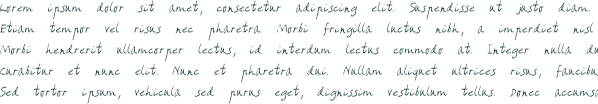 Lorem ipsum dolor sit amet, consectetur adipiscing elit. Suspendisse ut justo diam.
Etiam tempor vel risus nec pharetra. Morbi fringilla luctus nibh, a imperdiet nisl
Morbi hendrerit ullamcorper lectus, id interdum lectus commodo at. Integer nulla du
curabitur et nunc elit. Nunc et pharetra dui. Nullam aliquet ultrices risus, faucibu
Sed tortor ipsum, vehicula sed purus eget, dignissim vestibulum tellus. Donec accumsa